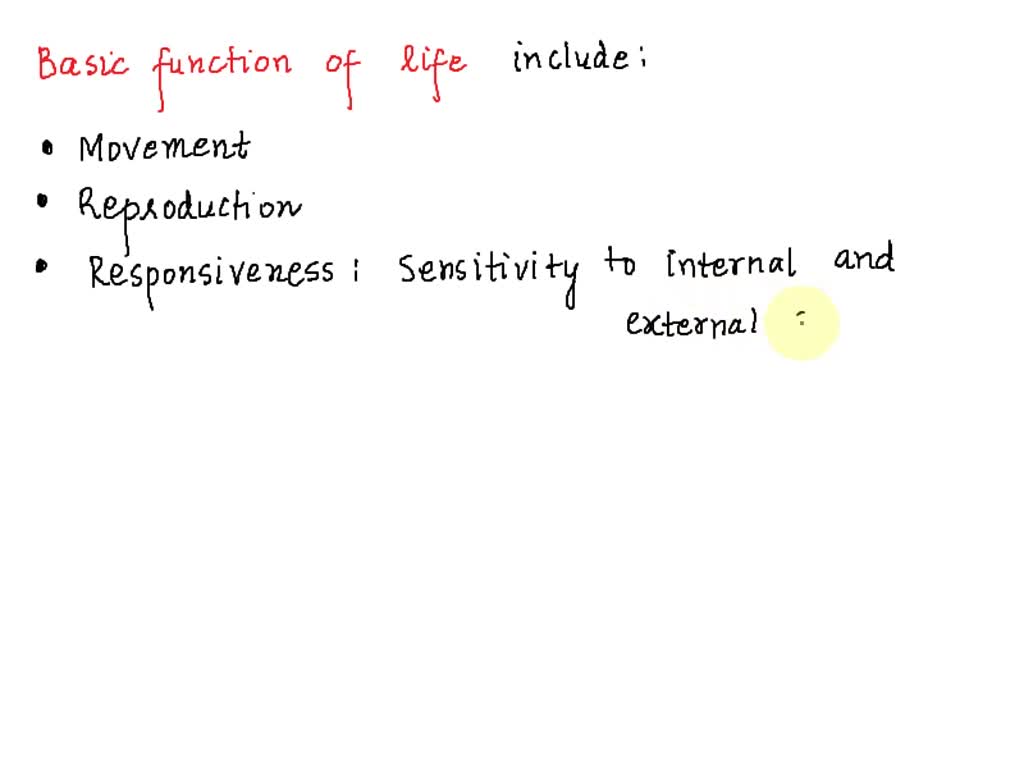 Basic function of life include:
• Movement
• Reproduction
• Responsiveness: Sensitivity to internal and
external